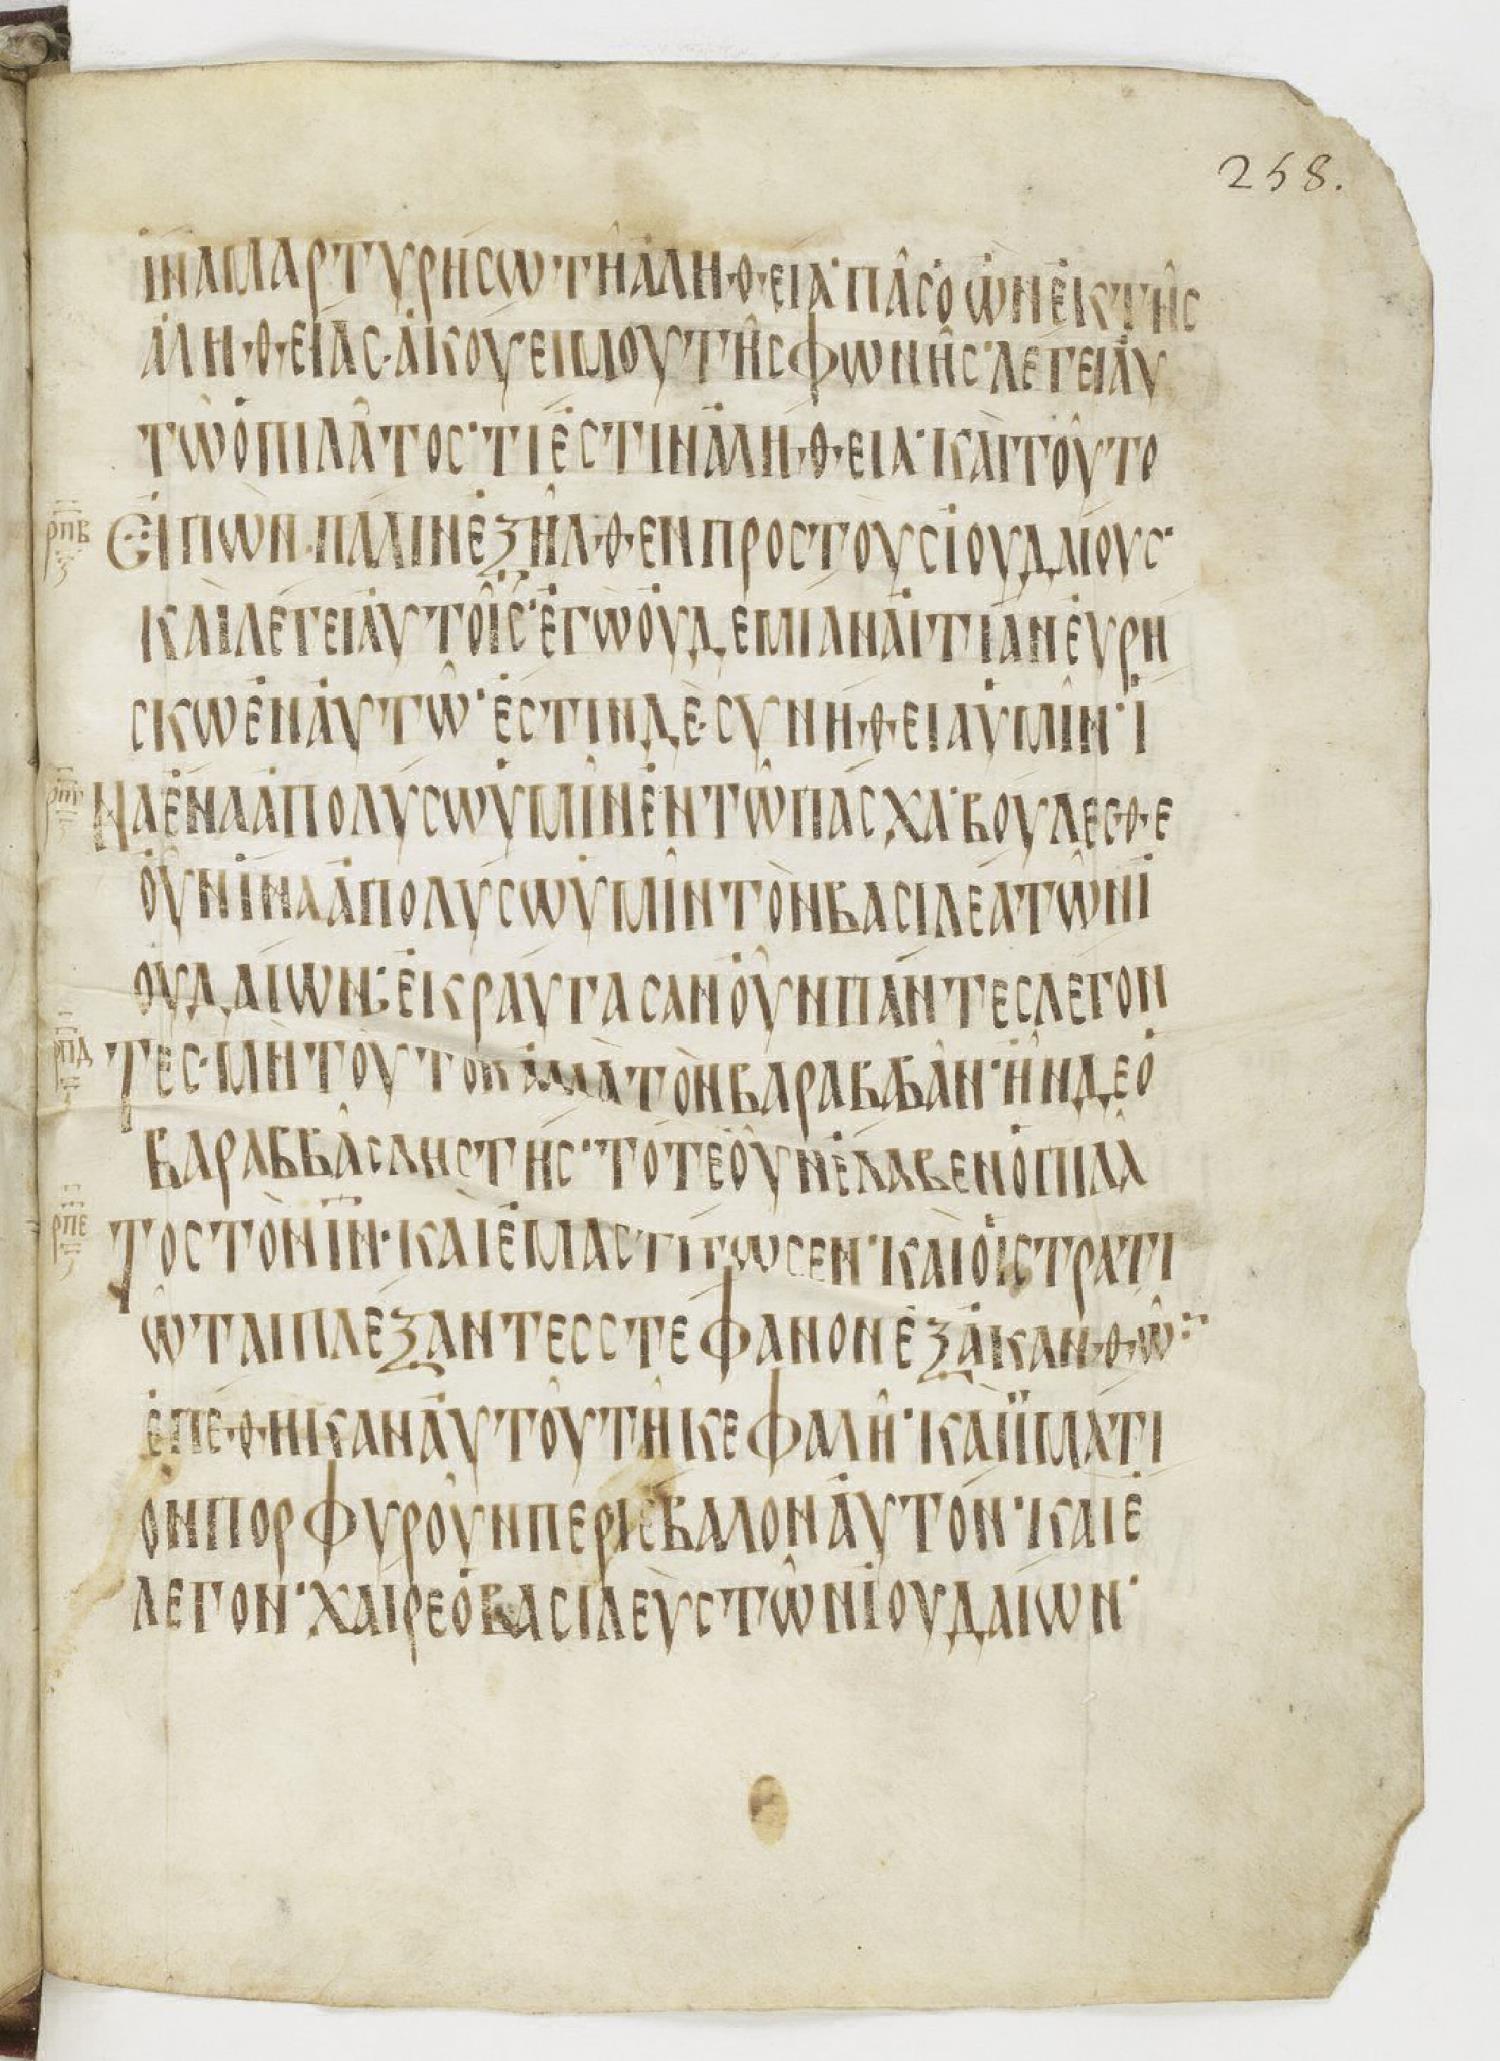 258.
ἵνα μαρτυρήσω τῆ ἀληθεία· πᾶς ὁ ὢν ἐκ τῆς
ἀληθείας· ἀκούει μου τῆς φωνῆς· λέγει αυ
τῶ ὁ πιλάτος· τί ἐστιν ἀλήθεια· καὶ τοῦτο
ρπβ εἰπὼν· πάλιν ἐξῆλθεν πρὸς τοὺς ἰουδαίους·
καὶ λέγει αὐτοῖς· ἐγὼ οὐδεμίαν αἰτίαν ἑυρή
σκω ἐν αὐτῶ· ἔστιν δὲ· συνήθεια υμῖν· ἵ
ρπγ να ἕνα ἀπολύσω ὑμῖν ἐν τῶ πάσχα· βούλεσθε
οὖν ἵνα ἀπολύσω ὑμῖν τὸν βασιλέα τῶν ἰ
ουδαίων; ἐκραύγασαν οὖν πάντες λέγον
ρπδ τες· μὴ τοῦτον ἀλλὰ τὸν βαραββᾶν· ἦν δὲ ὁ
βαραββᾶς ληστής· τότε οὖν ἔλαβεν ὁ πιλᾶ
ρπε τος τὸν ιν· καὶ ἐμαστίγωσεν· καὶ οἱ στρατι
ῶται πλέξαντες στέφανον ἐξ ἀκανθῶν
ἐπέθηκαν αὐτοῦ τῆ κεφαλῆ· καὶ ἱμάτι
ον πορφυροῦν περιέβαλον αὐτόν· καὶ ἔ
λεγον· χαῖρε ὁ βασιλεὺς τῶν ἰουδαίων·